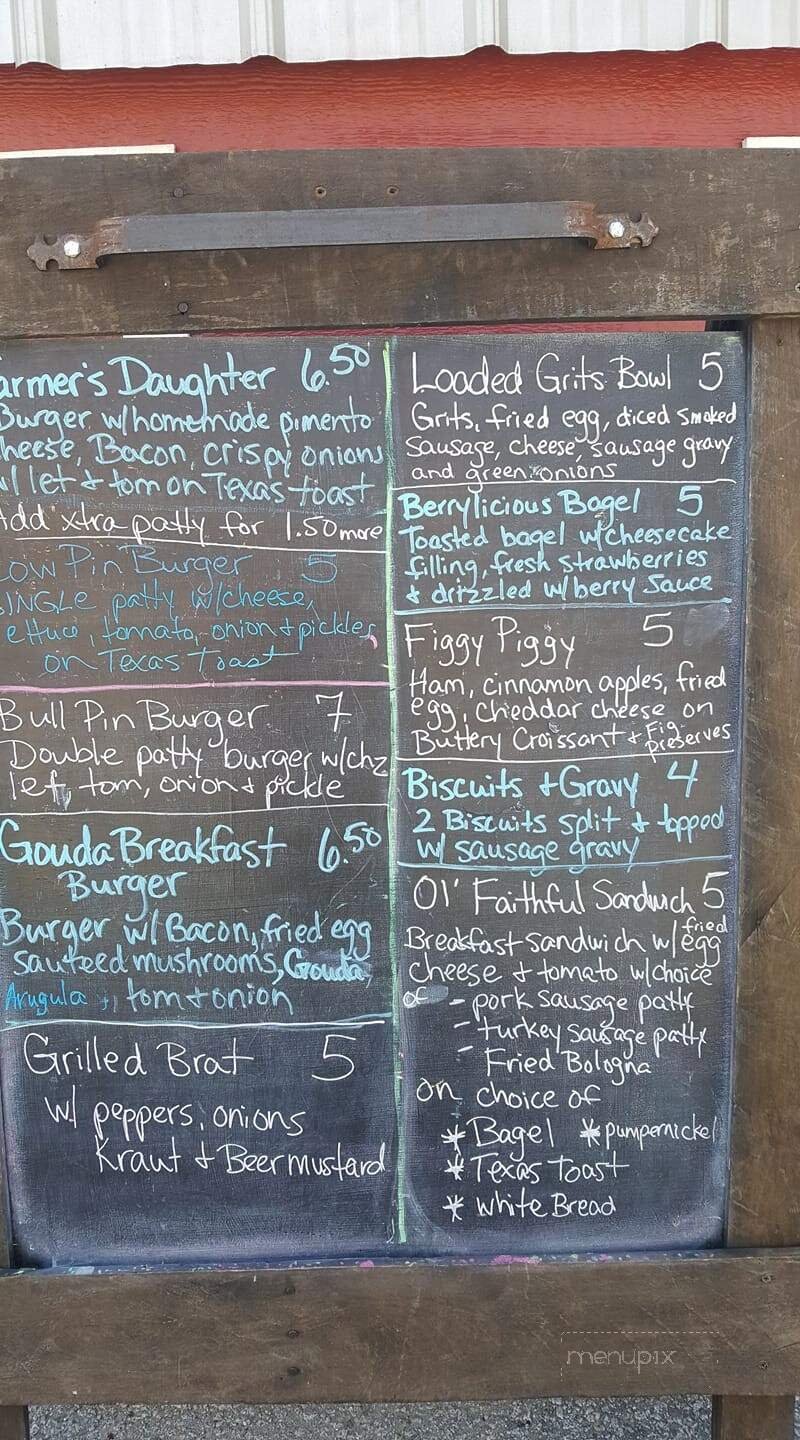 armer's Daughter 6.50
Burger w/homemade pimento
heese, Bacon, crispy onions
w/ let & tom on Texas toast
Add xtra patty for 1.50 more
Low Pin Burger 5
SINGLE patty w/cheese,
lettuce, tomato, onion & pickles
on Texas Toast
Bull Pin Burger 7
Double patty burger w/chz
let, tom, onion & pickle
Gouda Breakfast 6.50
Burger
Burger w/ Bacon, fried egg
Sauteed mushrooms, Gouda,
Arugula, tom & onion
Grilled Brat 5
w/ peppers, onions
Kraut & Beer mustard
Loaded Grits Bowl 5
Grits, fried egg, diced smoked
Sausage, cheese, sausage gravy
and green onions
Berrylicious Bagel 5
Toasted bagel w/cheesecake
filling, fresh strawberries
& drizzled w/berry Sauce
Figgy Piggy 5
Ham, cinnamon apples, fried
egg, cheddar cheese on
Buttery Croissant & Fig
preserves
Biscuits & Gravy 4
2 Biscuits split & topped
w/ sausage gravy
Ol' Faithful Sandwich 5
Breakfast sandwich w/ fried egg
cheese & tomato w/choice
of - pork sausage patty
- turkey sausage patty
- Fried Bologna
on choice of
* Bagel * pumpernickel
* Texas Toast
* White Bread
menupix